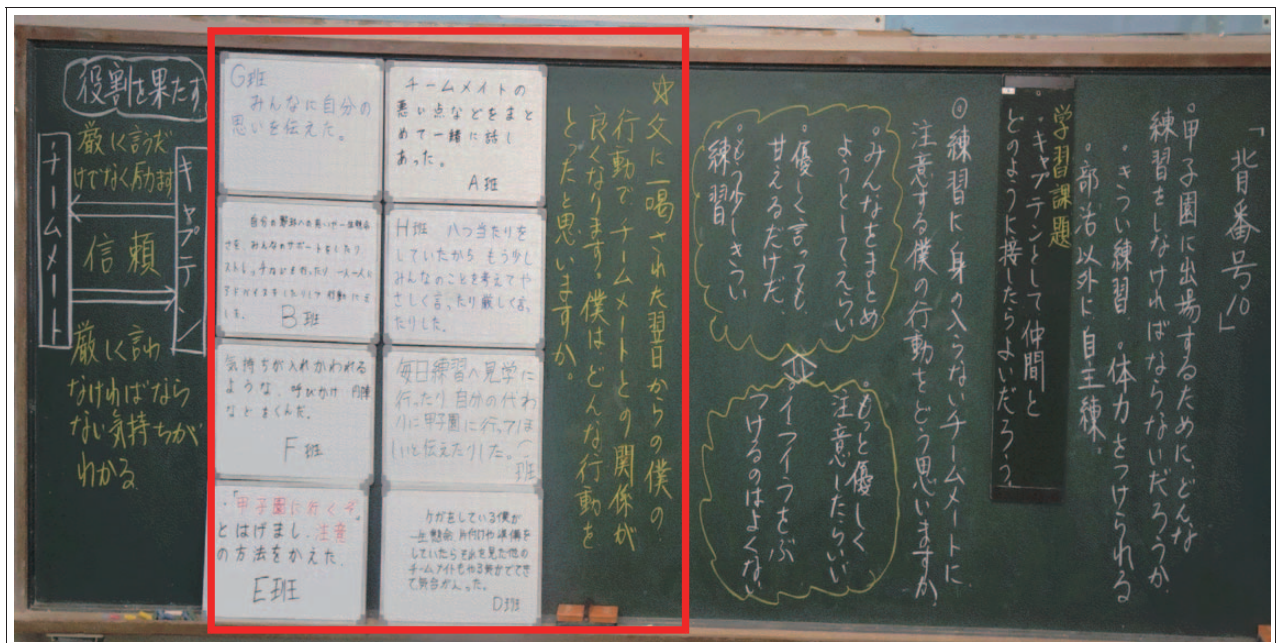 「背番号10」
。甲子園に出場するために、どんな
練習をしなければならないだろうか
・きつい練習 ・体力をつけられる
。部活以外に自主練。
学習課題
・キャプテンとして仲間と
どのように接したらよいだろう。
◎練習に身の入らないチームメートに
注意する僕の行動をどう思いますか
。みんなをまとめ
ようとしてえらい
。優しく言っても
甘えるだけだ。
。もう少しきつい
練習
。もっと優しく
注意したらいい
。イライラをぶ
つけるのはよくない
☆父に一喝された翌日からの僕の
行動で、チームメートとの関係が
良くなります。僕はどんな行動を
とったと思いますか。
チームメイトの
悪い点などをまと
めて一緒に話し
あった。
A班
H班 八つ当たりを
していたから もう少し
みんなのことを考えてや
さしく言ったり厳しく言っ
たりした。
毎日練習へ見学に
行ったり自分の代わ
りに甲子園に行ってほ
しいと伝えたりした。
班
ケガをしている僕が
一生懸命、片付けや準備を
していたらそれを見た他の
チームメイトもやる気がでてき
D班
G班
みんなに自分の
思いを伝えた。
B班
気持ちが入れかわれる
ような、呼びかけ 円陣
などをくんだ。
F班
・「甲子園に行くぞ」
とはげまし、注意
の方法をかえた
E班
役割を果たす
キャプテン
厳しく言うだ
けでなく励ます
信頼
厳しく言わ
なければなら
ない気持ちが
わかる
・チームメート